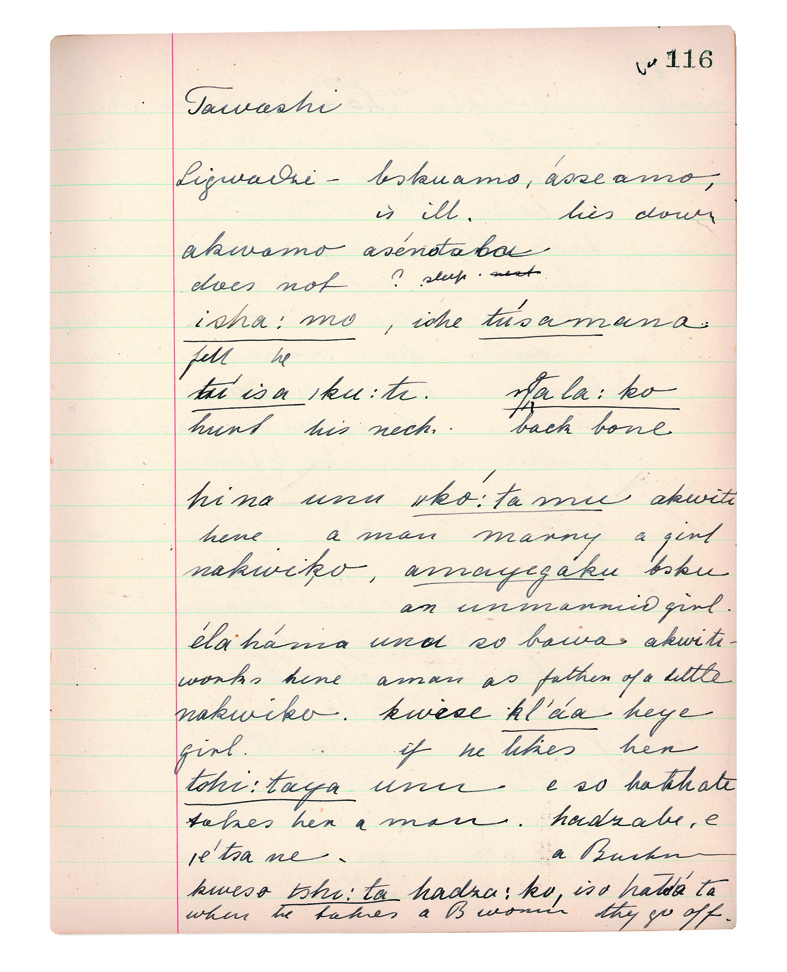 116
Tawashi
Ligwadzi - bskuamo, ásseamo,
is ill. lies down
akwamo asénotaba
does not ? sleep. nest
isha: mo , iche túsamana.
fell he
túisa ,ku:ti. ǀǀala: ko
hurt his neck. back bone
hina unu "kó: ta mu akwiti
here a man marry a girl
nakwiko, amayegaku bsku
an unmarried girl.
élaháma una so bawa akwiti-
works here a man as father of a little
nakwiko. kwese kl'áa heye
girl. if he likes her
tchi: taya unu. e so hatkhate
takes her a man. hadzabe, e
,é'tsa ne. a Bushm
kweso tshi: ta hadza: ko, iso
when he takes a B women they go off.